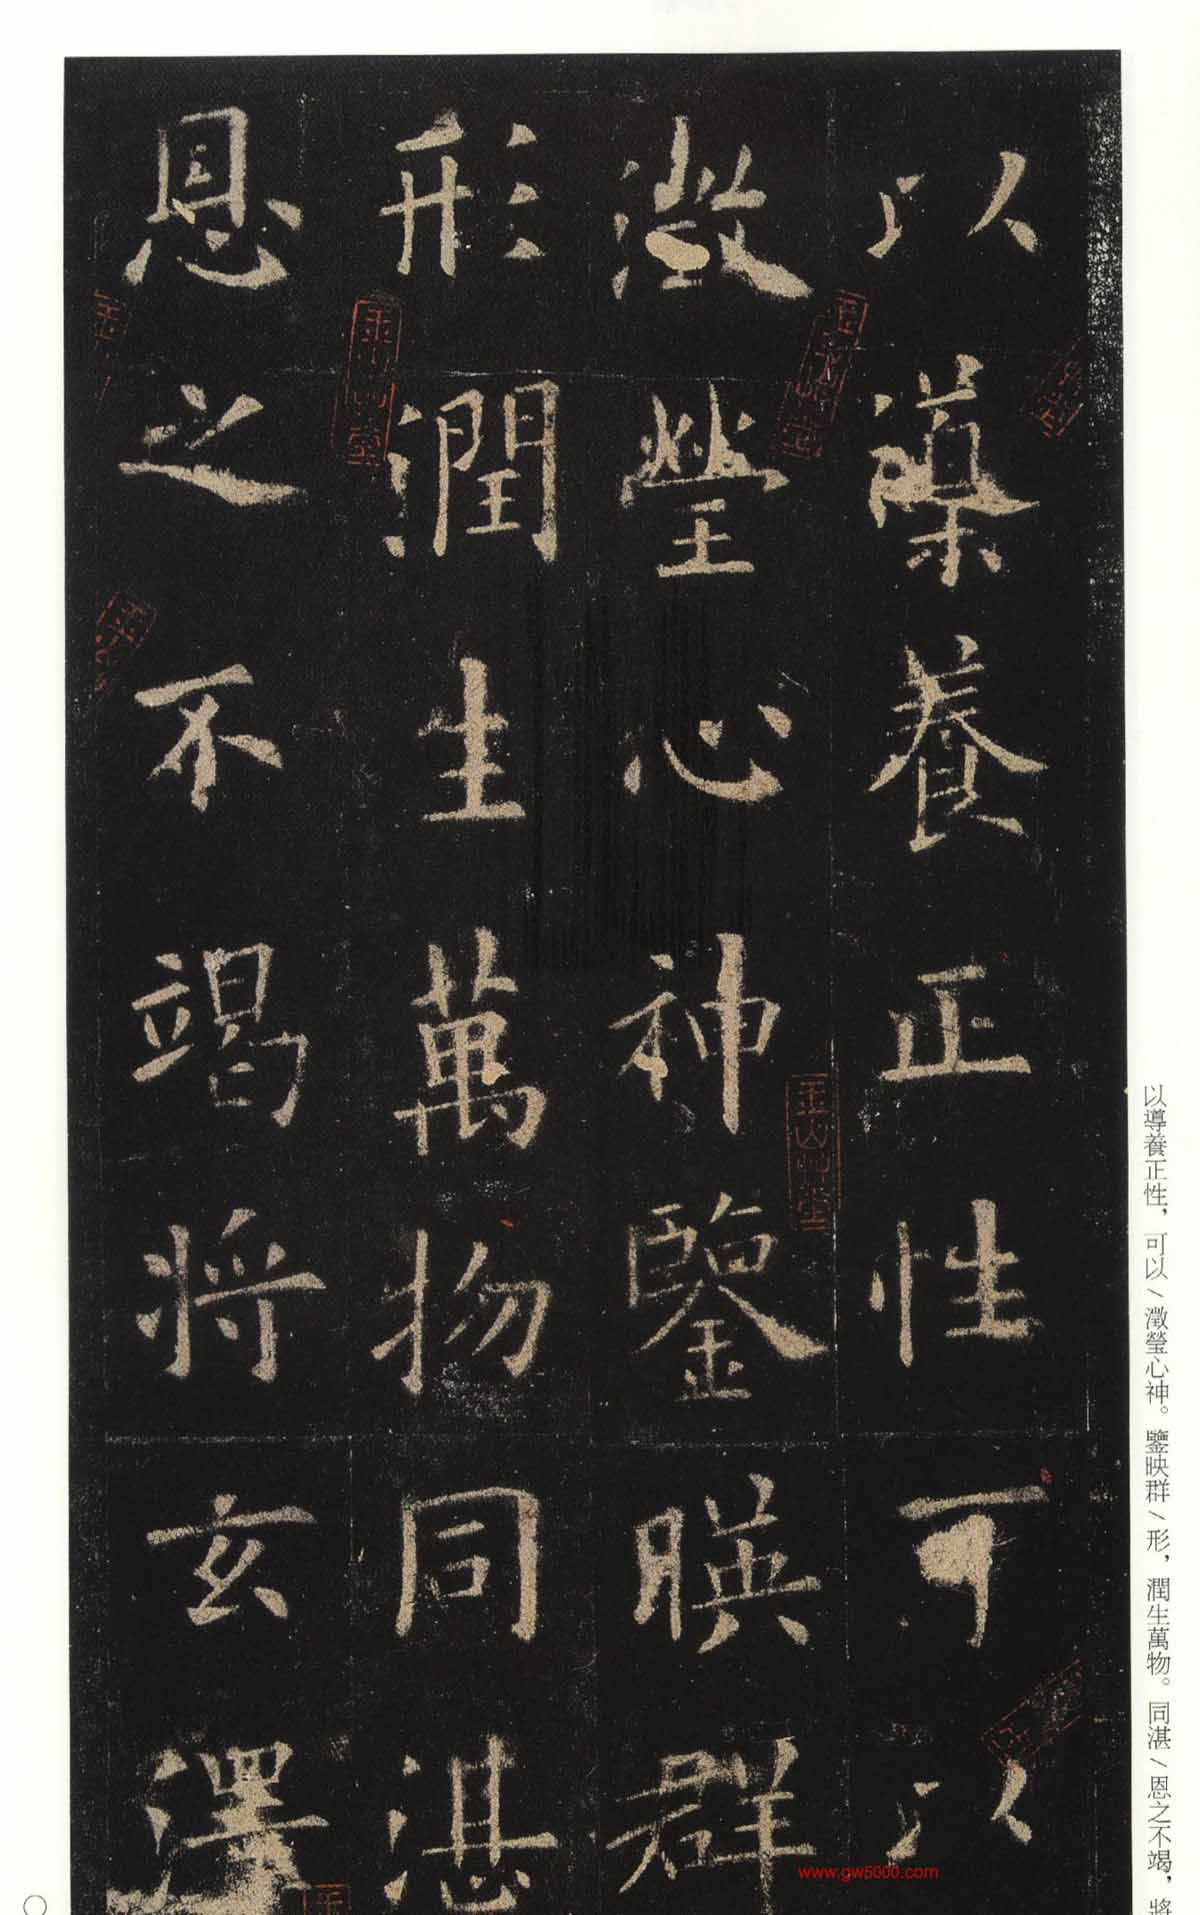 以導養正性可以
澂瑩心神鑒暎群
形潤生萬物同湛
恩之不竭将玄澤
以導養正性，可以／澂瑩心神。鑒映群／形，潤生萬物。同湛／恩之不竭，將
www.gw5000.com